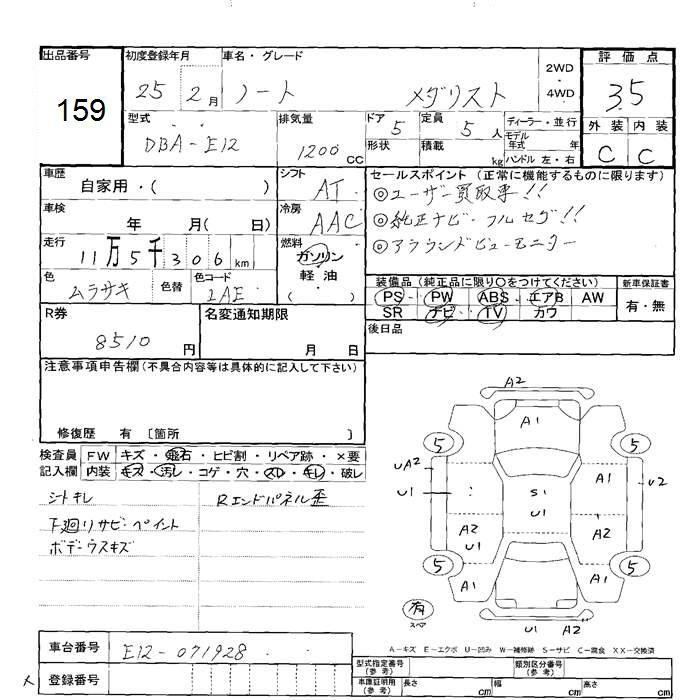 出品番号 初度登録年月 車名・グレード 2WD・4WD 評価点
159 25 2月 ノート メダリスト 3.5
型式 排気量 ドア 定員 ディーラー・並行 外装 内装
DBA-E12 1200 CC 5 5人 モデル年式 年 C C
形状 積載 kg ハンドル 左・右
車歴 シフト セールスポイント (正常に機能するものに限ります)
自家用・( ) AT ◎ユーザー買取車!!
車検 冷房 ◎純正ナビ・フルセグ!!
年 月( 日) AAC ◎アラウンドビューモニター
走行 燃料
11万5千306km ガソリン
色 色替 色コード 軽油
ムラサキ LAE ( )
装備品 (純正品に限り○をつけてください) 新車保証書
PS・PW・ABS・エアB AW 有・無
SR ナビ TV カワ
R券 名変通知期限 後日品
8510円 月 日
注意事項申告欄(不具合内容等は具体的に記入して下さい)
修復歴 有 〔箇所 〕
検査員 FW キズ・飛石・ヒビ割・リペア跡・×要
記入欄 内装 キズ・汚レ・コゲ・穴・スレ・キレ・破レ
シートキレ Rエンドパネル歪
下廻りサビ・ペイント
ボデーウスキズ
A2
A1
5 5
UA2 A1
U1 S1 U2
U1
A2 A2
U1
5 5
A1 A1
有
スペア
U1 A2
A-キズ E-エクボ U-凹み W-補修跡 S-サビ C-腐食 XX-交換済
車台番号 E12-071928 型式指定番号(参考) 類別区分番号(参考)
登録番号 車庫証明用(参考) 長さ cm 幅 cm 高さ cm